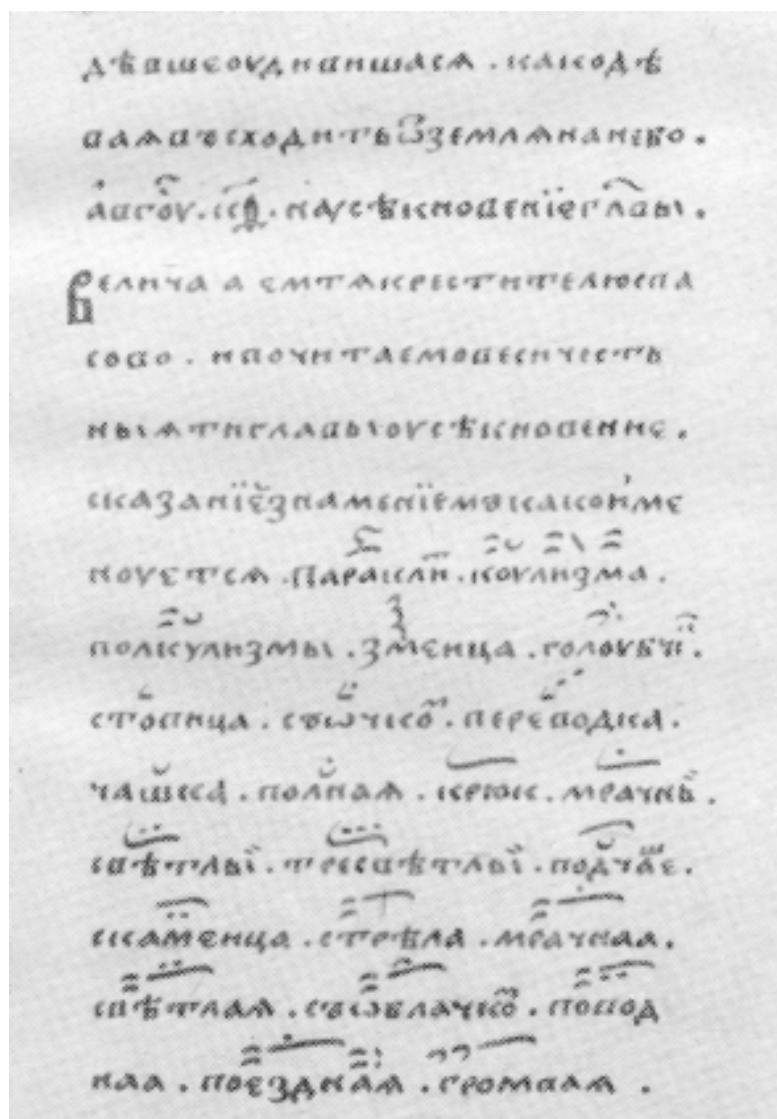 дѣвшеоудививишасѧ . какодѣ
ваꙗвъсходитьѿземлѧнанебо .
авгоу . . наусѣкновенїеглавы .
Величаа емтѧкрестителюспа
сово . ипочитаемовсѝчисть
ныѧтиглавыоусѣкновение .
сказанїезнаменїемъкакоиме
ноуетсѧ . Параклит . коулизма .
полкулизмы . змеица . голоубчи .
стопица . съѡчкомъ . переводка .
чашка . полнаѧ . крюк . мрачны .
свѣтлыї . тресвѣтлыї . подчаше .
скамеица . стрѣла . мрачнаа .
свѣтлаѧ . съѡблачкомъ . повод
наа . поезднаѧ . громнаѧ .